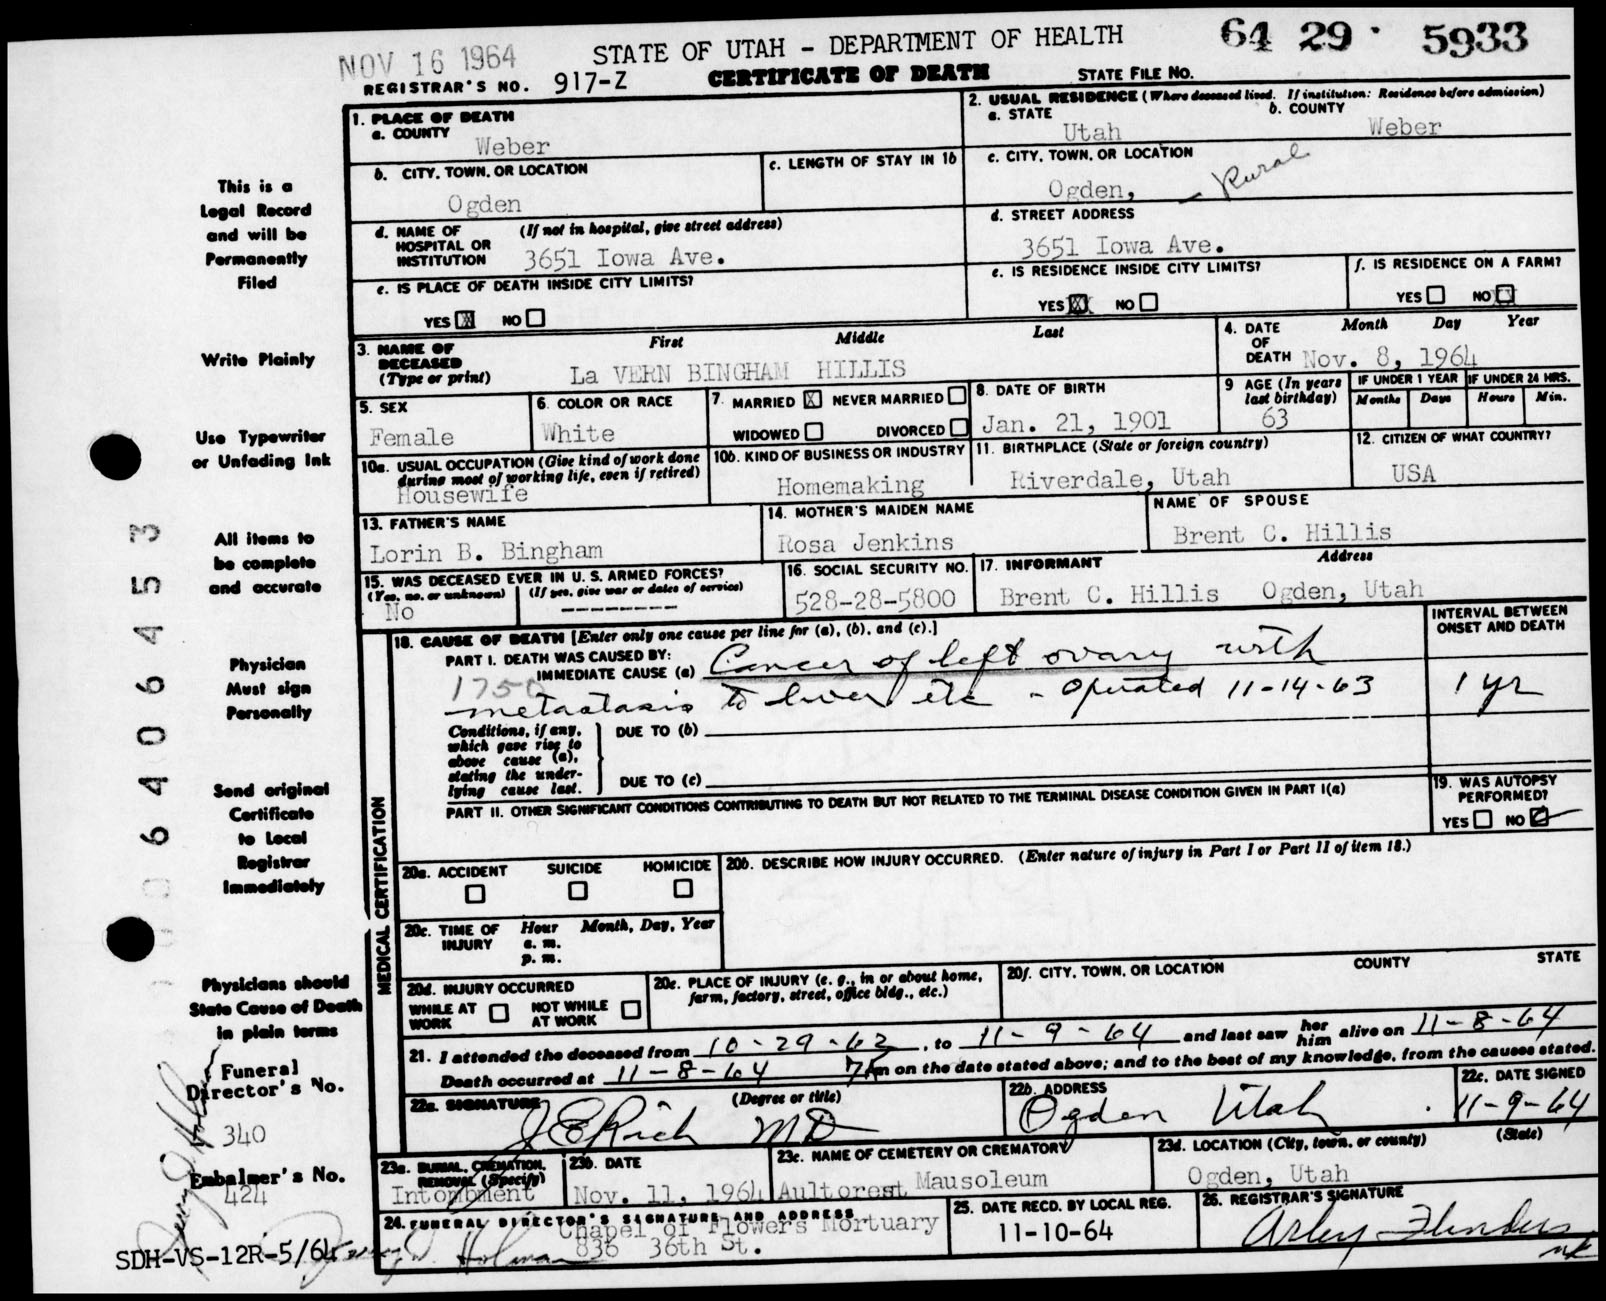 NOV 16 1964
STATE OF UTAH - DEPARTMENT OF HEALTH
64 29 · 5933
REGISTRAR'S NO. 917-Z
CERTIFICATE OF DEATH
STATE FILE NO.
1. PLACE OF DEATH
a. COUNTY
Weber
2. USUAL RESIDENCE (Where deceased lived. If institution: Residence before admission)
a. STATE
Utah
b. COUNTY
Weber
b. CITY, TOWN, OR LOCATION
Ogden
c. LENGTH OF STAY IN 1b
c. CITY, TOWN, OR LOCATION
Ogden, - Rural
d. NAME OF HOSPITAL OR INSTITUTION
(If not in hospital, give street address)
3651 Iowa Ave.
d. STREET ADDRESS
3651 Iowa Ave.
e. IS PLACE OF DEATH INSIDE CITY LIMITS?
YES X NO
e. IS RESIDENCE INSIDE CITY LIMITS?
YES X NO
f. IS RESIDENCE ON A FARM?
YES NO X
3. NAME OF DECEASED
(Type or print)
First Middle Last
La VERN BINGHAM HILLIS
4. DATE OF DEATH
Month Day Year
Nov. 8, 1964
5. SEX
Female
6. COLOR OR RACE
White
7. MARRIED X NEVER MARRIED
WIDOWED DIVORCED
8. DATE OF BIRTH
Jan. 21, 1901
9 AGE (In years last birthday)
63
IF UNDER 1 YEAR
Months Days
IF UNDER 24 HRS.
Hours Min.
10a. USUAL OCCUPATION (Give kind of work done
during most of working life, even if retired)
Housewife
10b. KIND OF BUSINESS OR INDUSTRY
Homemaking
11. BIRTHPLACE (State or foreign country)
Riverdale, Utah
12. CITIZEN OF WHAT COUNTRY?
USA
13. FATHER'S NAME
Lorin B. Bingham
14. MOTHER'S MAIDEN NAME
Rosa Jenkins
NAME OF SPOUSE
Brent C. Hillis
15. WAS DECEASED EVER IN U. S. ARMED FORCES?
(Yes, no, or unknown) (If yes, give war or dates of service)
No --------
16. SOCIAL SECURITY NO.
528-28-5800
17. INFORMANT Address
Brent C. Hillis Ogden, Utah
MEDICAL CERTIFICATION
18. CAUSE OF DEATH [Enter only one cause per line for (a), (b), and (c).]
INTERVAL BETWEEN
ONSET AND DEATH
PART I. DEATH WAS CAUSED BY:
IMMEDIATE CAUSE (a) Cancer of left ovary with
1750
metastasis to liver etc - Operated 11-14-63
1 yr
Conditions, if any,
which gave rise to
above cause (a),
stating the under-
lying cause last.
DUE TO (b)
DUE TO (c)
PART II. OTHER SIGNIFICANT CONDITIONS CONTRIBUTING TO DEATH BUT NOT RELATED TO THE TERMINAL DISEASE CONDITION GIVEN IN PART I(a)
19. WAS AUTOPSY
PERFORMED?
YES NO
20a. ACCIDENT SUICIDE HOMICIDE
20b. DESCRIBE HOW INJURY OCCURRED. (Enter nature of injury in Part I or Part II of item 18.)
20c. TIME OF INJURY
Hour Month, Day, Year
a. m.
p. m.
20d. INJURY OCCURRED
WHILE AT WORK
NOT WHILE AT WORK
20e. PLACE OF INJURY (e. g., in or about home,
farm, factory, street, office bldg., etc.)
20f. CITY, TOWN, OR LOCATION COUNTY STATE
21. I attended the deceased from 10-29-62, to 11-9-64 and last saw her him alive on 11-8-64
Death occurred at 11-8-64 7Am on the date stated above; and to the best of my knowledge, from the causes stated.
22a. SIGNATURE (Degree or title)
J E Rich MD
22b. ADDRESS
Ogden Utah
22c. DATE SIGNED
11-9-64
23a. BURIAL, CREMATION,
REMOVAL (Specify)
Intombment
23b. DATE
Nov. 11, 1964
23c. NAME OF CEMETERY OR CREMATORY
Aultorest Mausoleum
23d. LOCATION (City, town, or county) (State)
Ogden, Utah
24. FUNERAL DIRECTOR'S SIGNATURE AND ADDRESS
Chapel of Flowers Mortuary
836 36th St.
Holman
25. DATE RECD. BY LOCAL REG.
11-10-64
26. REGISTRAR'S SIGNATURE
Arley Flinders
This is a
Legal Record
and will be
Permanently
Filed
Write Plainly
Use Typewriter
or Unfading Ink
All items to
be complete
and accurate
Physician
Must sign
Personally
Send original
Certificate
to Local
Registrar
Immediately
Physicians should
State Cause of Death
in plain terms
Funeral
Director's No.
340
Embalmer's No.
424
SDH-VS-12R-5/64
06406453